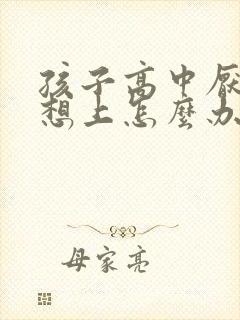 孩子高中厭
想上怎麼办
母家亮